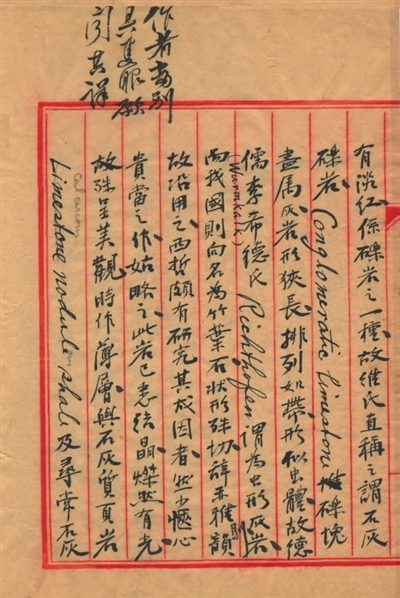 作者當別
具隻眼願
闻其详
有淡紅係礫岩之一種故維氏直稱之謂石灰
礫岩 Conglomeratic limestone 礫塊
盡属灰岩形狹長排列如帶形似虫體故德
儒李希德氏 Richthofen 謂為虫形灰岩
(Wurmkalk)
而我國則向名為竹葉石狀形殊切辞亦雅韻
故沿用之西哲頗有研究其成因者然少愜心
貴當之作姑略之此岩已悉结晶燦然有光
故殊呈美觀時作薄層與石灰質頁岩
calcareous
Limestone nodule shale 及尋常石灰